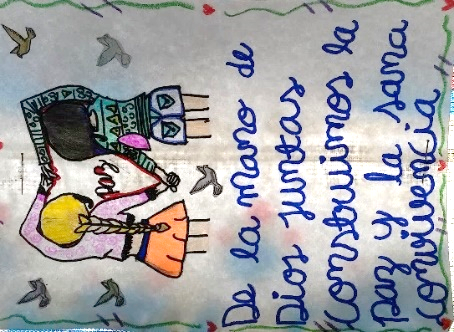 De la mano de
Dios juntas
construimos la
paz y la sana
convivencia